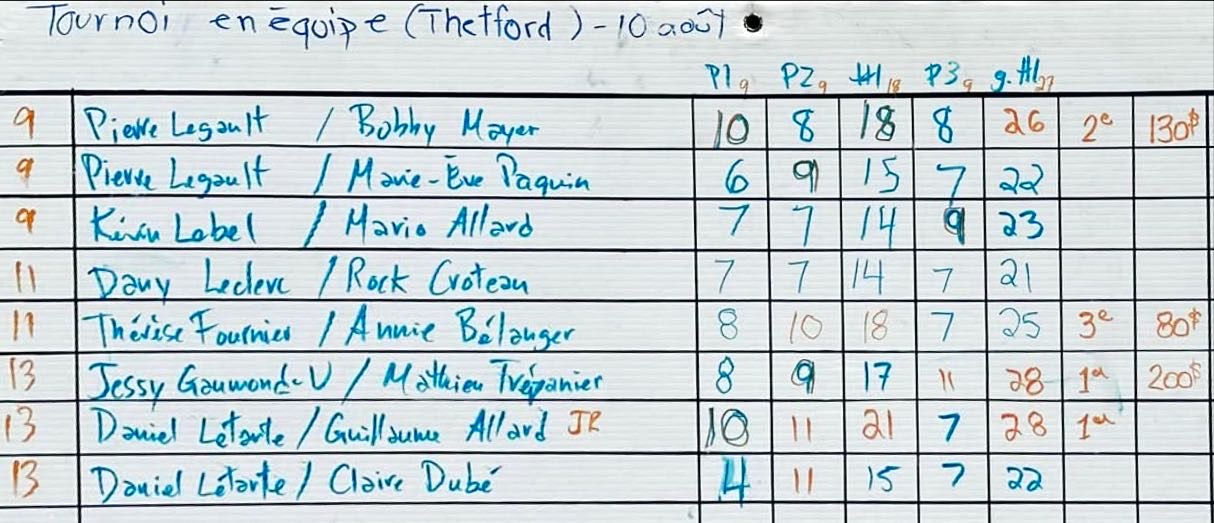 Tournoi en équipe (Thetford) - 10 août
P1 9 P2 9 #1 18 P3 9 g. #1 27
9 Pierre Legault / Bobby Mayer 10 8 18 8 26 2e 130$
9 Pierre Legault / Marie-Ève Paquin 6 9 15 7 22
9 Kévin Label / Mario Allard 7 7 14 9 23
11 Dany Leclerc / Rock Croteau 7 7 14 7 21
11 Thérèse Fournier / Annie Bélanger 8 10 18 7 25 3e 80$
13 Jessy Gaumond-V / Mathieu Trépanier 8 9 17 11 28 1er 200$
13 Daniel Létarte / Guillaume Allard JR 10 11 21 7 28 1er
13 Daniel Létarte / Claire Dubé 4 11 15 7 22